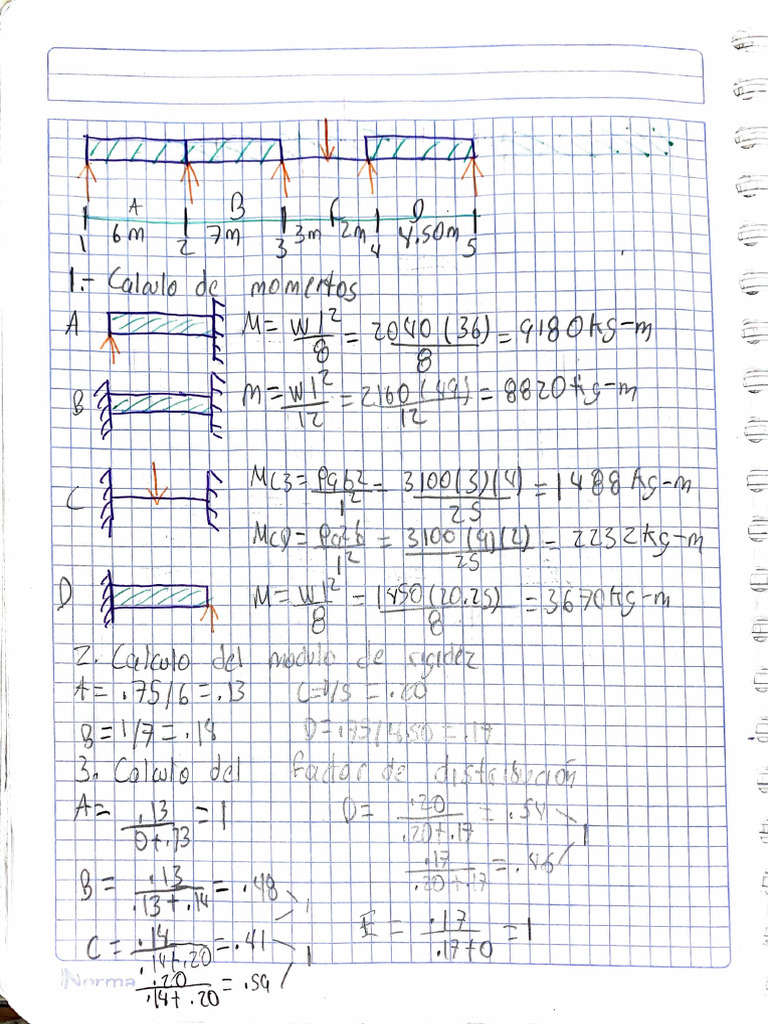 A B C D
1 6m 2 7m 3 3m 2m 4 4.50m 5
1.- Calculo de momentos
A M = wl²/8 = 2040(36)/8 = 9180 kg-m
B M = wl²/12 = 2160(49)/12 = 8820 kg-m
C MC3 = Pab²/l² = 3100(3)(4)/25 = 1488 kg-m
MCD = Pa²b/l² = 3100(9)(2)/25 = 2232 kg-m
D M = wl²/8 = 1450(20.25)/8 = 3670 kg-m
2. Calculo del modulo de rigidez
A = .75/6 = .13 C = 1/5 = .20
B = 1/7 = .14 D = .75/4.50 = .17
3. Calculo del factor de distribución
A = .13/0+.13 = 1 D = .20/.20+.17 = .54
.17/.20+.17 = .46 1
B = .13/.13+.14 = .48 1
C = .14/.14+.20 = .41 1 E = .17/.17+0 = 1
.20/.14+.20 = .59
Norma